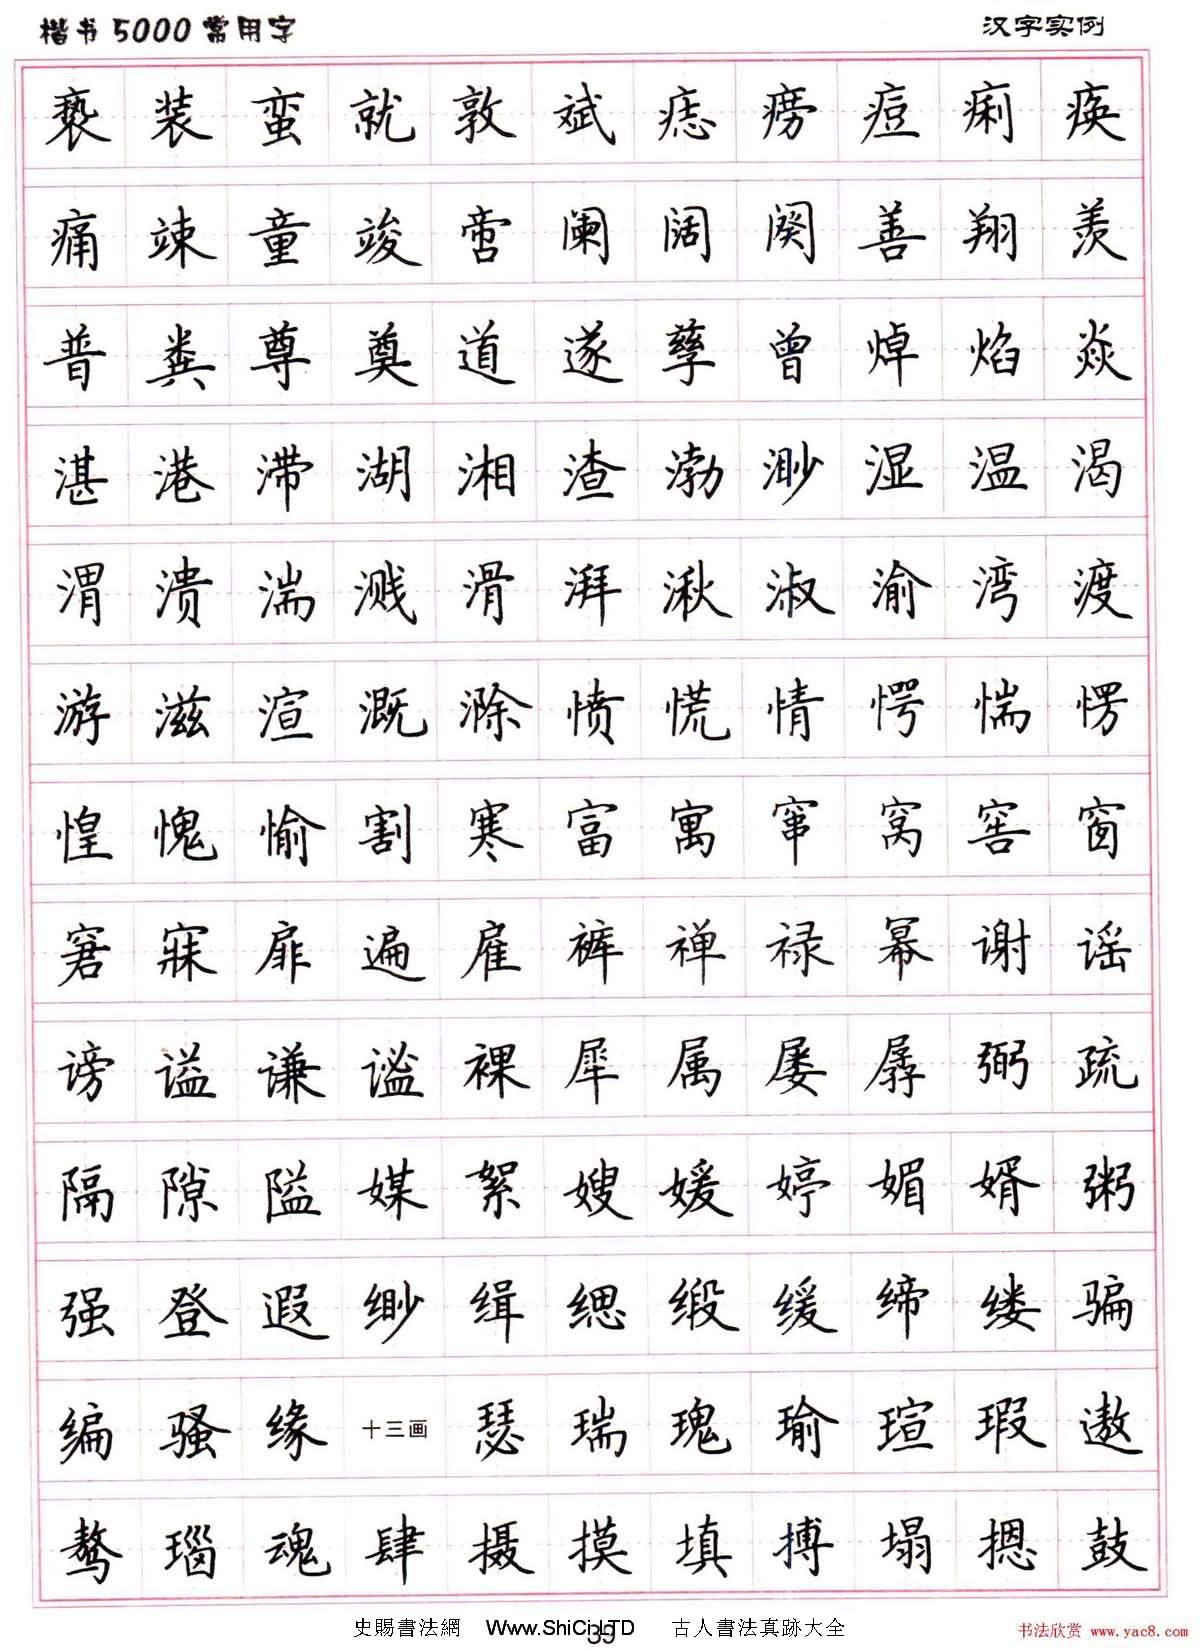 楷书5000常用字 汉字实例
亵 装 蛮 就 敦 斌 痣 痨 痘 痢 痪
痛 竦 童 竣 啻 阑 阔 阕 善 翔 羡
普 粪 尊 奠 道 遂 孳 曾 焯 焰 焱
湛 港 滞 湖 湘 渣 渤 渺 湿 温 渴
渭 溃 湍 溅 滑 湃 湫 淑 渝 湾 渡
游 滋 渲 溉 滁 愤 慌 情 愕 惴 愣
惶 愧 愉 割 寒 富 寓 窜 窝 窖 窗
窘 寐 扉 遍 雇 裤 禅 禄 幂 谢 谣
谤 谥 谦 谧 裸 犀 属 屡 孱 弼 疏
隔 隙 隘 媒 絮 嫂 媛 婷 媚 婿 粥
强 登 遐 缈 缉 缌 缎 缓 缔 缕 骗
编 骚 缘 十三画 瑟 瑞 瑰 瑜 瑄 瑕 遨
骜 瑙 魂 肆 摄 摸 填 搏 塌 摁 鼓
史賜書法網 Www.ShiCi.LTD 古人書法真跡大全
39
书法欣赏 www.yac8.com